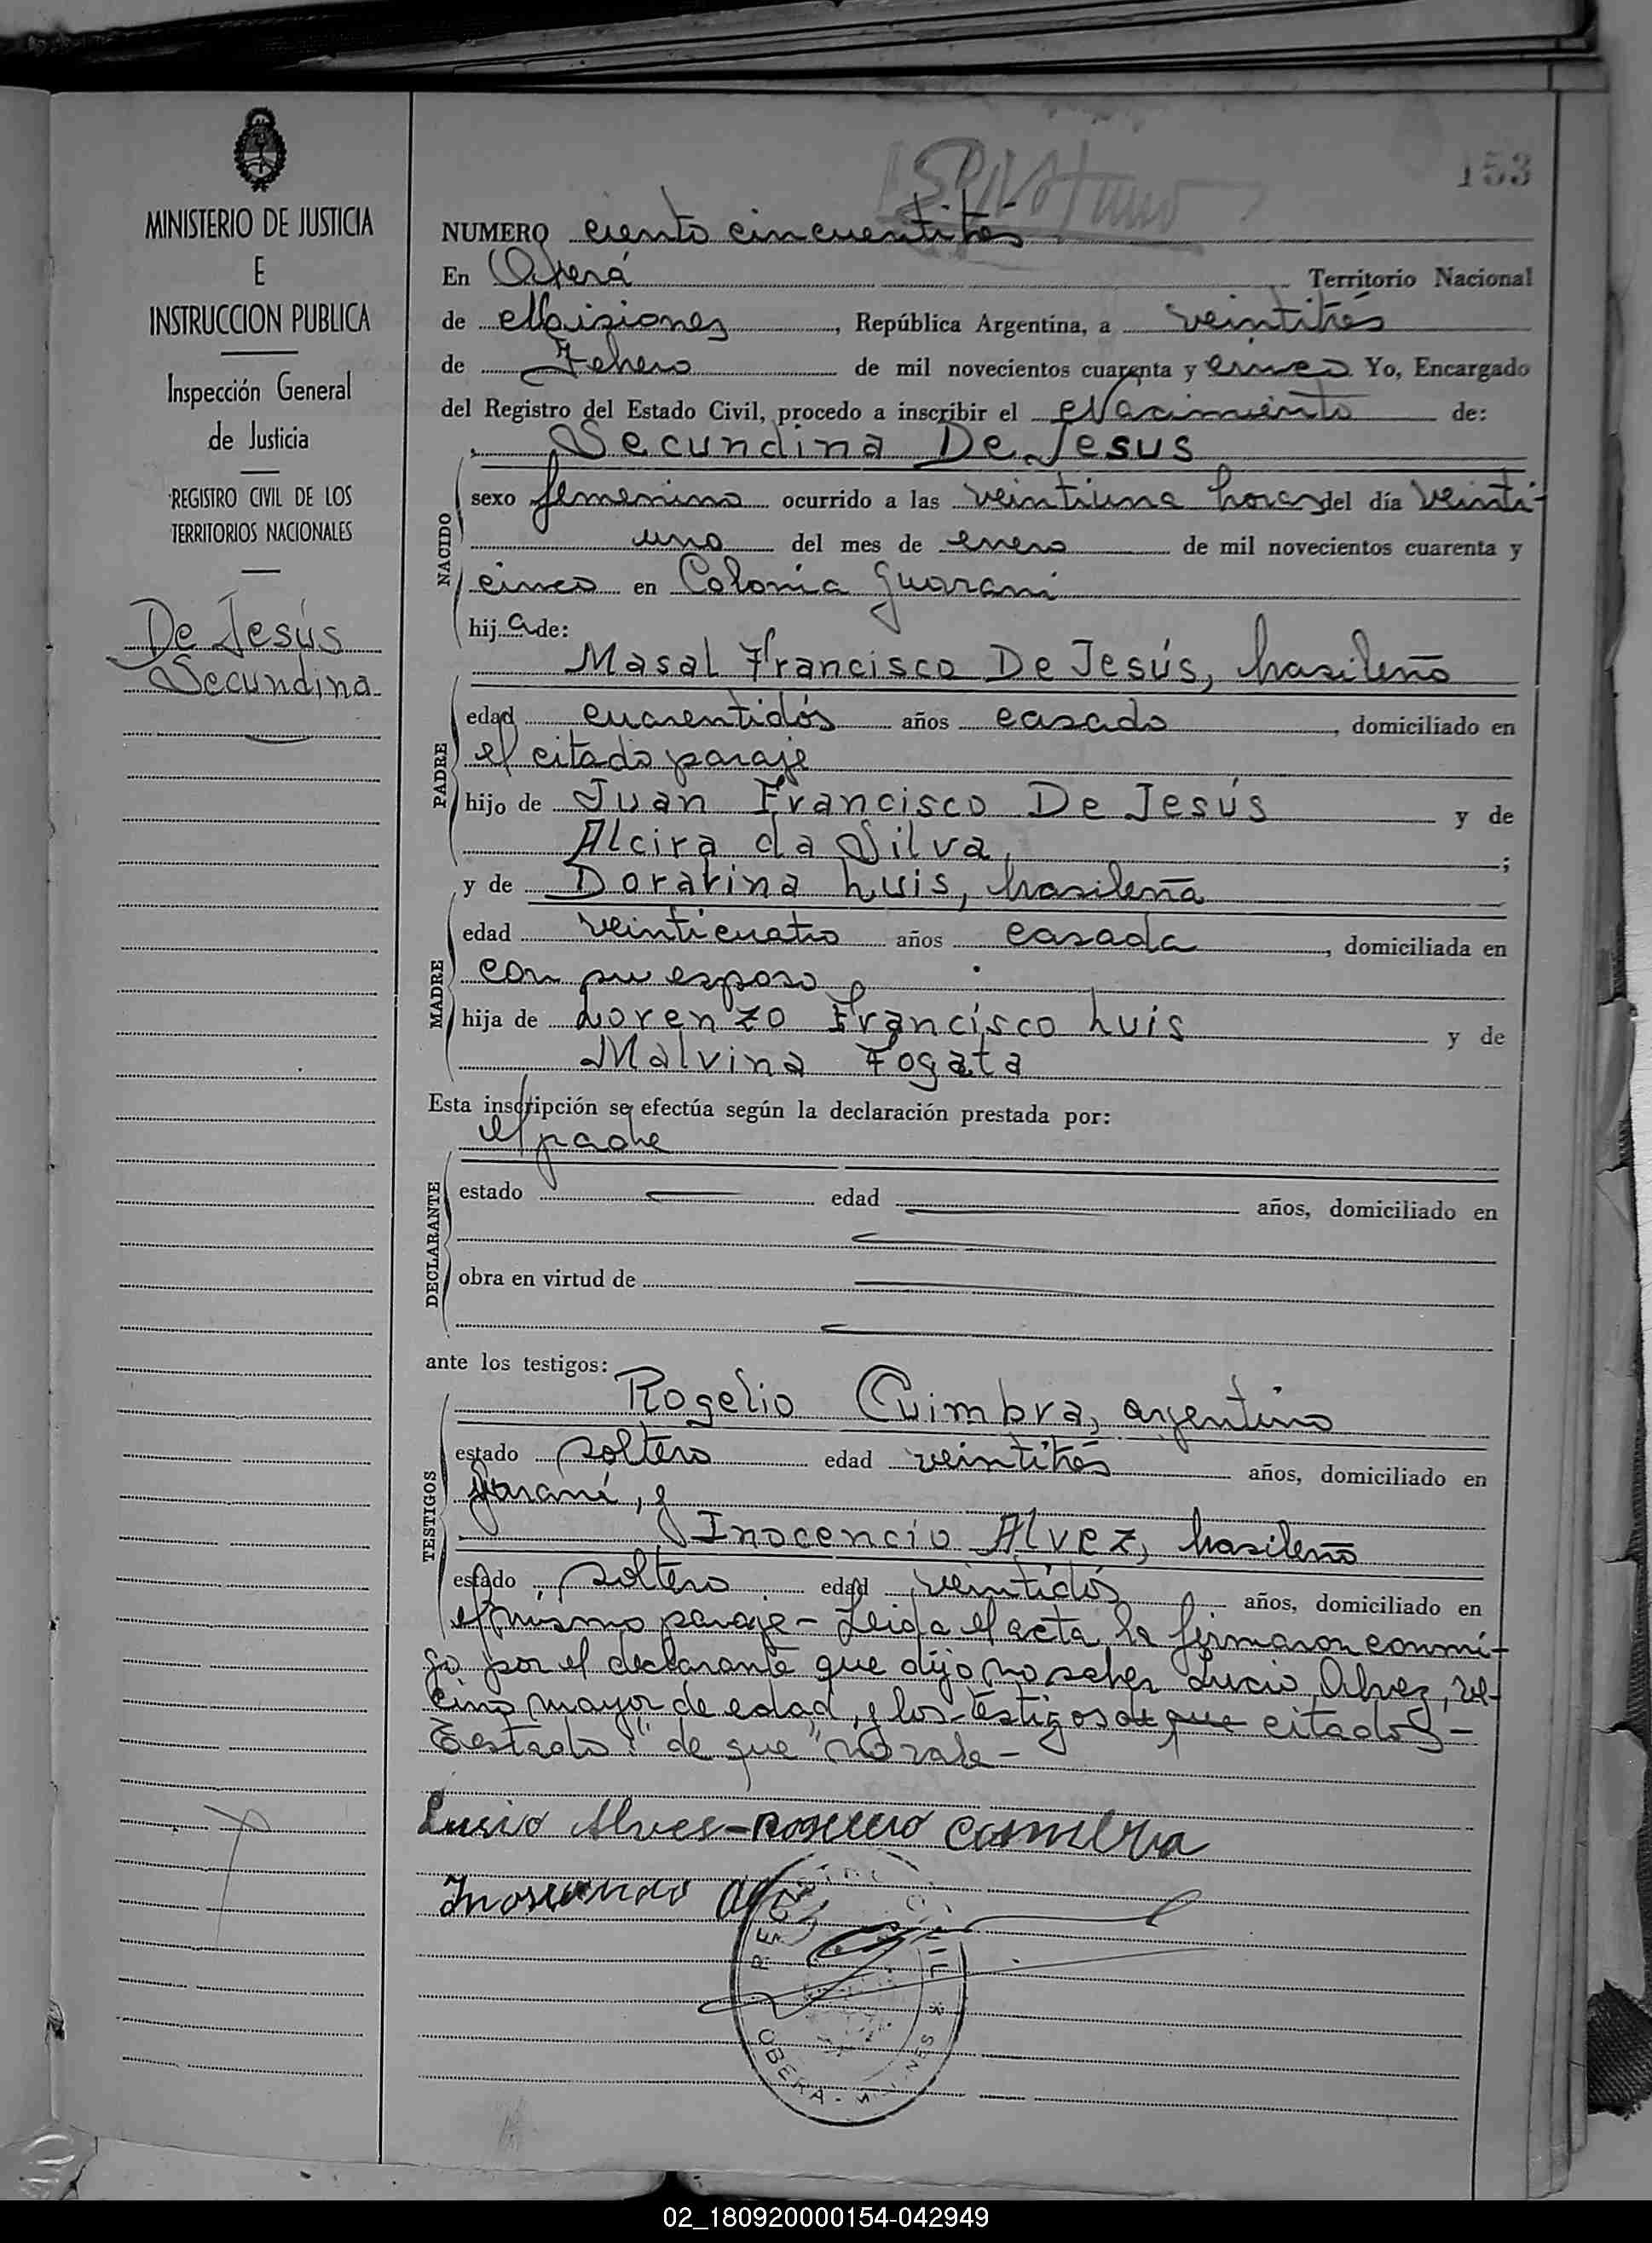 153
MINISTERIO DE JUSTICIA
E
INSTRUCCION PUBLICA
Inspección General
de Justicia
REGISTRO CIVIL DE LOS
TERRITORIOS NACIONALES
De Jesús
Secundina
NUMERO ciento cincuentitrés
En Oberá Territorio Nacional
de Misiones, República Argentina, a veintitrés
de Febrero de mil novecientos cuarenta y cinco Yo, Encargado
del Registro del Estado Civil, procedo a inscribir el Nacimiento de:
Secundina De Jesus
NACIDO
sexo femenino ocurrido a las veintiuna horas del día veinti-
uno del mes de enero de mil novecientos cuarenta y
cinco en Colonia Guarani
hija de:
Masal Francisco De Jesús, brasileño
PADRE
edad cuarentidós años casado, domiciliado en
el citado paraje
hijo de Juan Francisco De Jesús y de
Alcira da Silva, ;
y de Doratina Luis, brasileña
MADRE
edad veinticuatro años casada, domiciliada en
con su esposo
hija de Lorenzo Francisco Luis y de
Malvina Fogata
Esta inscripción se efectúa según la declaración prestada por:
el padre
DECLARANTE
estado edad años, domiciliado en
obra en virtud de
ante los testigos:
Rogelio Cuimbra, argentino
TESTIGOS
estado soltero edad veintitrés años, domiciliado en
Guaraní, y
Inocencio Alvez, brasileño
estado soltero edad veintidós años, domiciliado en
el mismo paraje - Leida el acta, la firmaron conmi-
go por el declarante que dijo no saber Lucio Alvez, ve-
cino mayor de edad, y los testigos de que citados -
Testado: "de que" no vale -
Lusio Alves - Rogelio Coimbra
REGISTRO CIVIL
OBERA - MISIONES
02_180920000154-042949